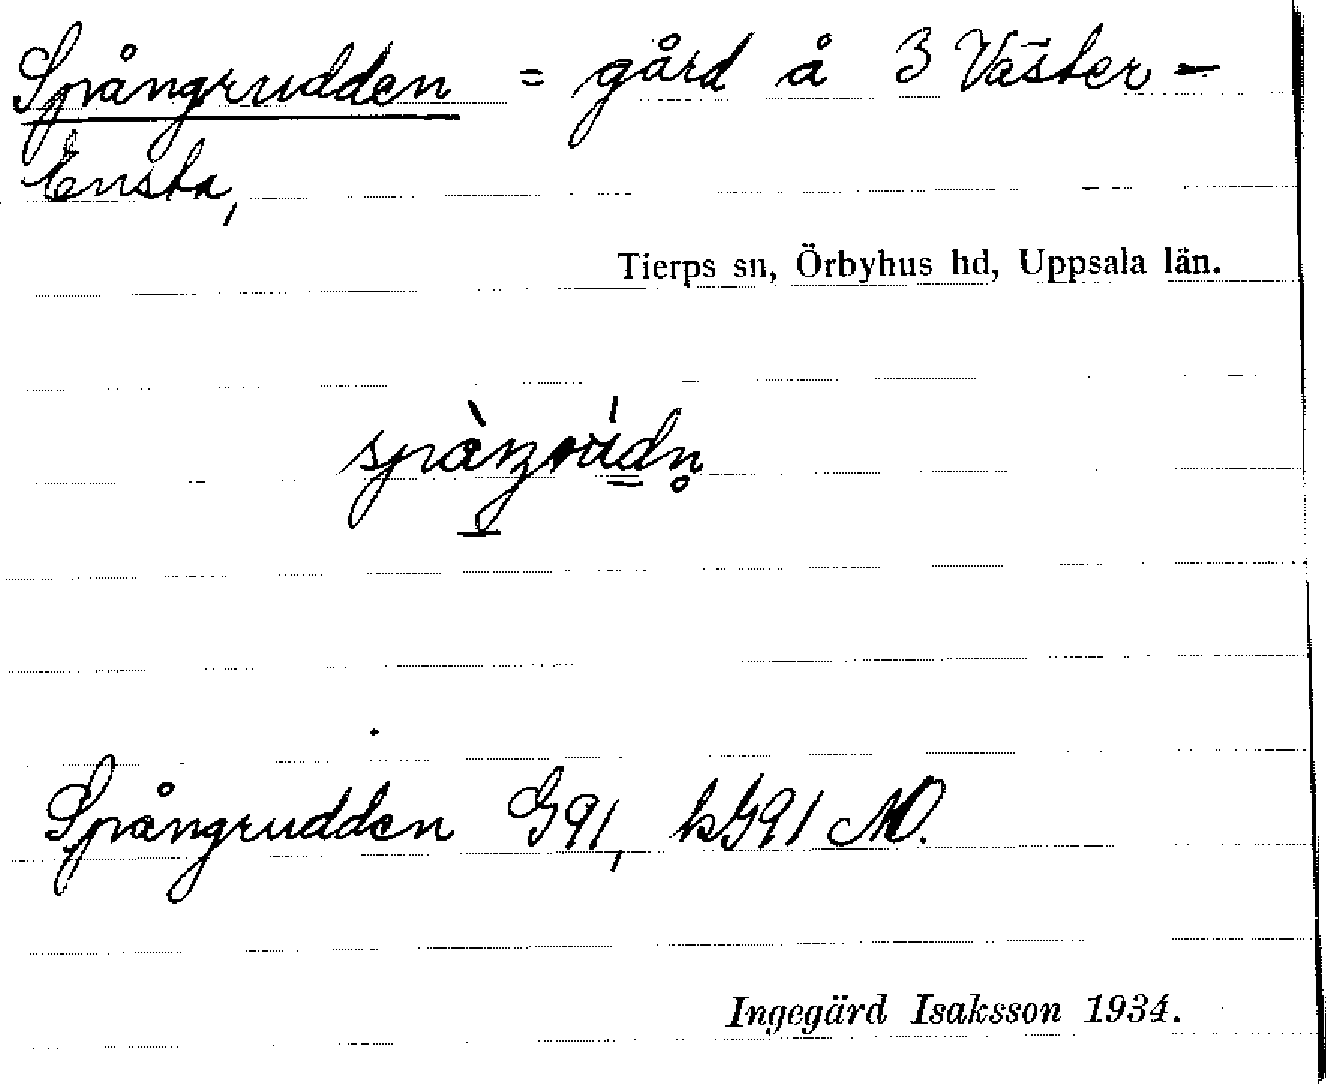 Spångrudden = gård å 3 Väster-
Ensta,
Tierps sn, Örbyhus hd, Uppsala län.
Spångrudden G91, kG91 MO.
Ingegärd Isaksson 1934.